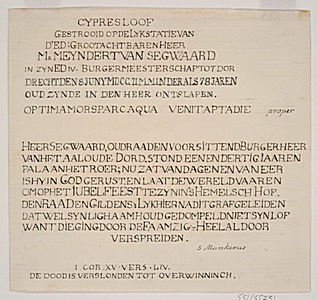 CYPRESLOOF
GESTROOID OP DE LYKSTATIE VAN
D'ED: GROOTACHTBAREN HEER
MR MEYNDERT VAN SEGWAARD
IN ZYN ED IV. BURGERMEESTERSCHAP TOT DOR
DRECHT DEN 8 JUNY MDCCII MIN DER ALS 78 JAREN
OUD ZYNDE IN DEN HEER ONTSLAPEN.
OPTIMA MORS PARCA QUA VENIT APTA DIE proper
HEER SEGWAARD, OUD RAAD EN VOORSITTEND BURGERHEER
VAN HET AALOUDE DORD, STOND EEN EN DERTIG IAAREN
PALAAN HET ROER; NU ZAT VAN DAGEN EN VAN EER
IS HY IN GOD GERUST EN LAAT DE WERELD VAAREN
OM OP HET IUBELFEEST TE ZYN IN'S HEMELSCH HOF,
DEN RAAD EN GILDENS; LYK HIER NA DIT GRAF GELEIDEN
DAT WEL SYN LIGHAAM HOUD GEDOMPELD NIET SYN LOF
WANT DIE GING DOOR DE FAAM ZIG 'T HEELAL DOOR
VERSPREIDEN.
S Munkerus
I COR XV-VERS-LIV.
DE DOOD IS VERSLONDEN TOT OVERWINNINCH.